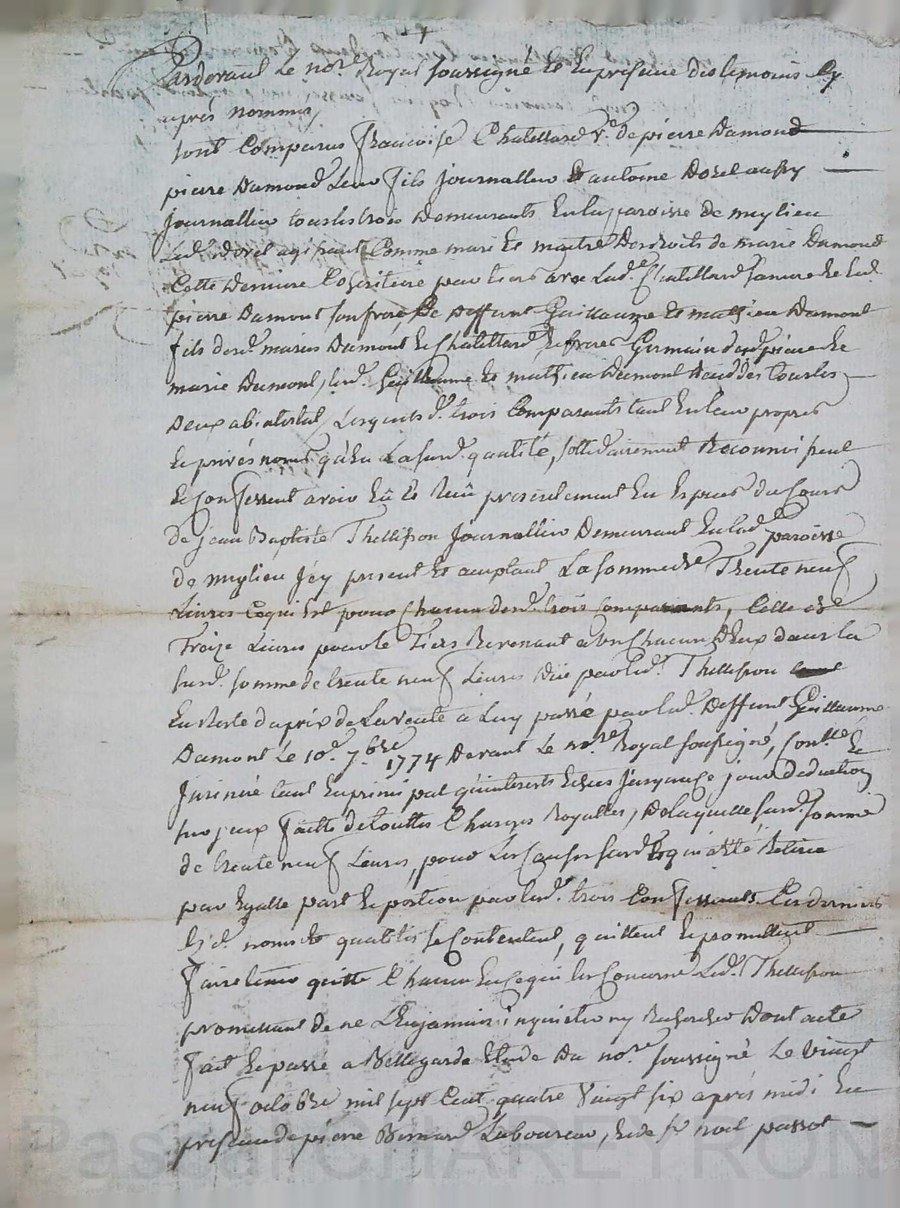 Pardevant Le no.re Royal soussigné Et En presence des temoins Cy
après nommés
sont Comparus Francoise Chatellard v.e de pierre Damond
pierre Damond Leur fils journallier Et antoine Dorel aussy
journallier tous les trois Demeurants En la paroisse de mylieu
Led. Dorel agissant Comme mari Et maitre Des droits de marie Damond
Cette Derniere Coheritiere pour tiers avec Lad.e Chatellard sa mere Et Led.
pierre Damont son frere De Deffunt Guillaume Et mathieu Damont
fils desd. maries Damont Et Chatellard, Et freres Germain dud. pierre Et
marie Damont, Lesd. Guillaume Et mathieu Damont Décédés tous les
Deux abintestat, Lesquels d. trois Comparants tant En leur propres
Et privés noms qu'En La susd. qualité, sollidairement Reconnoissent
Et Confessent avoir Eû Et Reçû presentement En Especes du Cours
de jean Baptiste Thellisson journallier Demeurant En lad. paroisse
de mylieu jcy present Et acceptant La somme de Trente neuf
Livres Ce qui Est pour Chacun desd. trois Comparants, Celle de
Treize Livres pour le Tiers Revenant a un Chacun d'Eux dans la
susd. somme de trente neuf Livres Düe par led. Thellisson
En Reste du prix de La vente a Luy passé par led. Deffunt Guillaume
Damont Le 10.e 7.bre 1774 Devant Le no.re Royal soussigné, Con.llé Et
jnsinué tant En principal qu'interests Echus jusqu'a Ce jour deduction
sur jceux faitte de touttes Charges Royalles, De laquelle susd. somme
de trente neuf Livres, pour Les Causes susd. Et qui a Eté Retirée
par Egalle part Et portion par lesd. trois Confessants Ces derniers
Esd. noms Et qualités se Contentent, quittent Et promettent
faire tenir quitte Chacun En Ce qui les Concerne Led. Thellisson
promettant de ne L'En jamais inquieter ny Rechercher Dont acte
fait Et passé a Bellegarde Etude Du no.re soussigné Le vingt
neuf octobre mil sept Cent quatre vingt six après midi En
presence de pierre Bernard Laboureur, Et de s.r noel passot
Pascal CHAREYRON